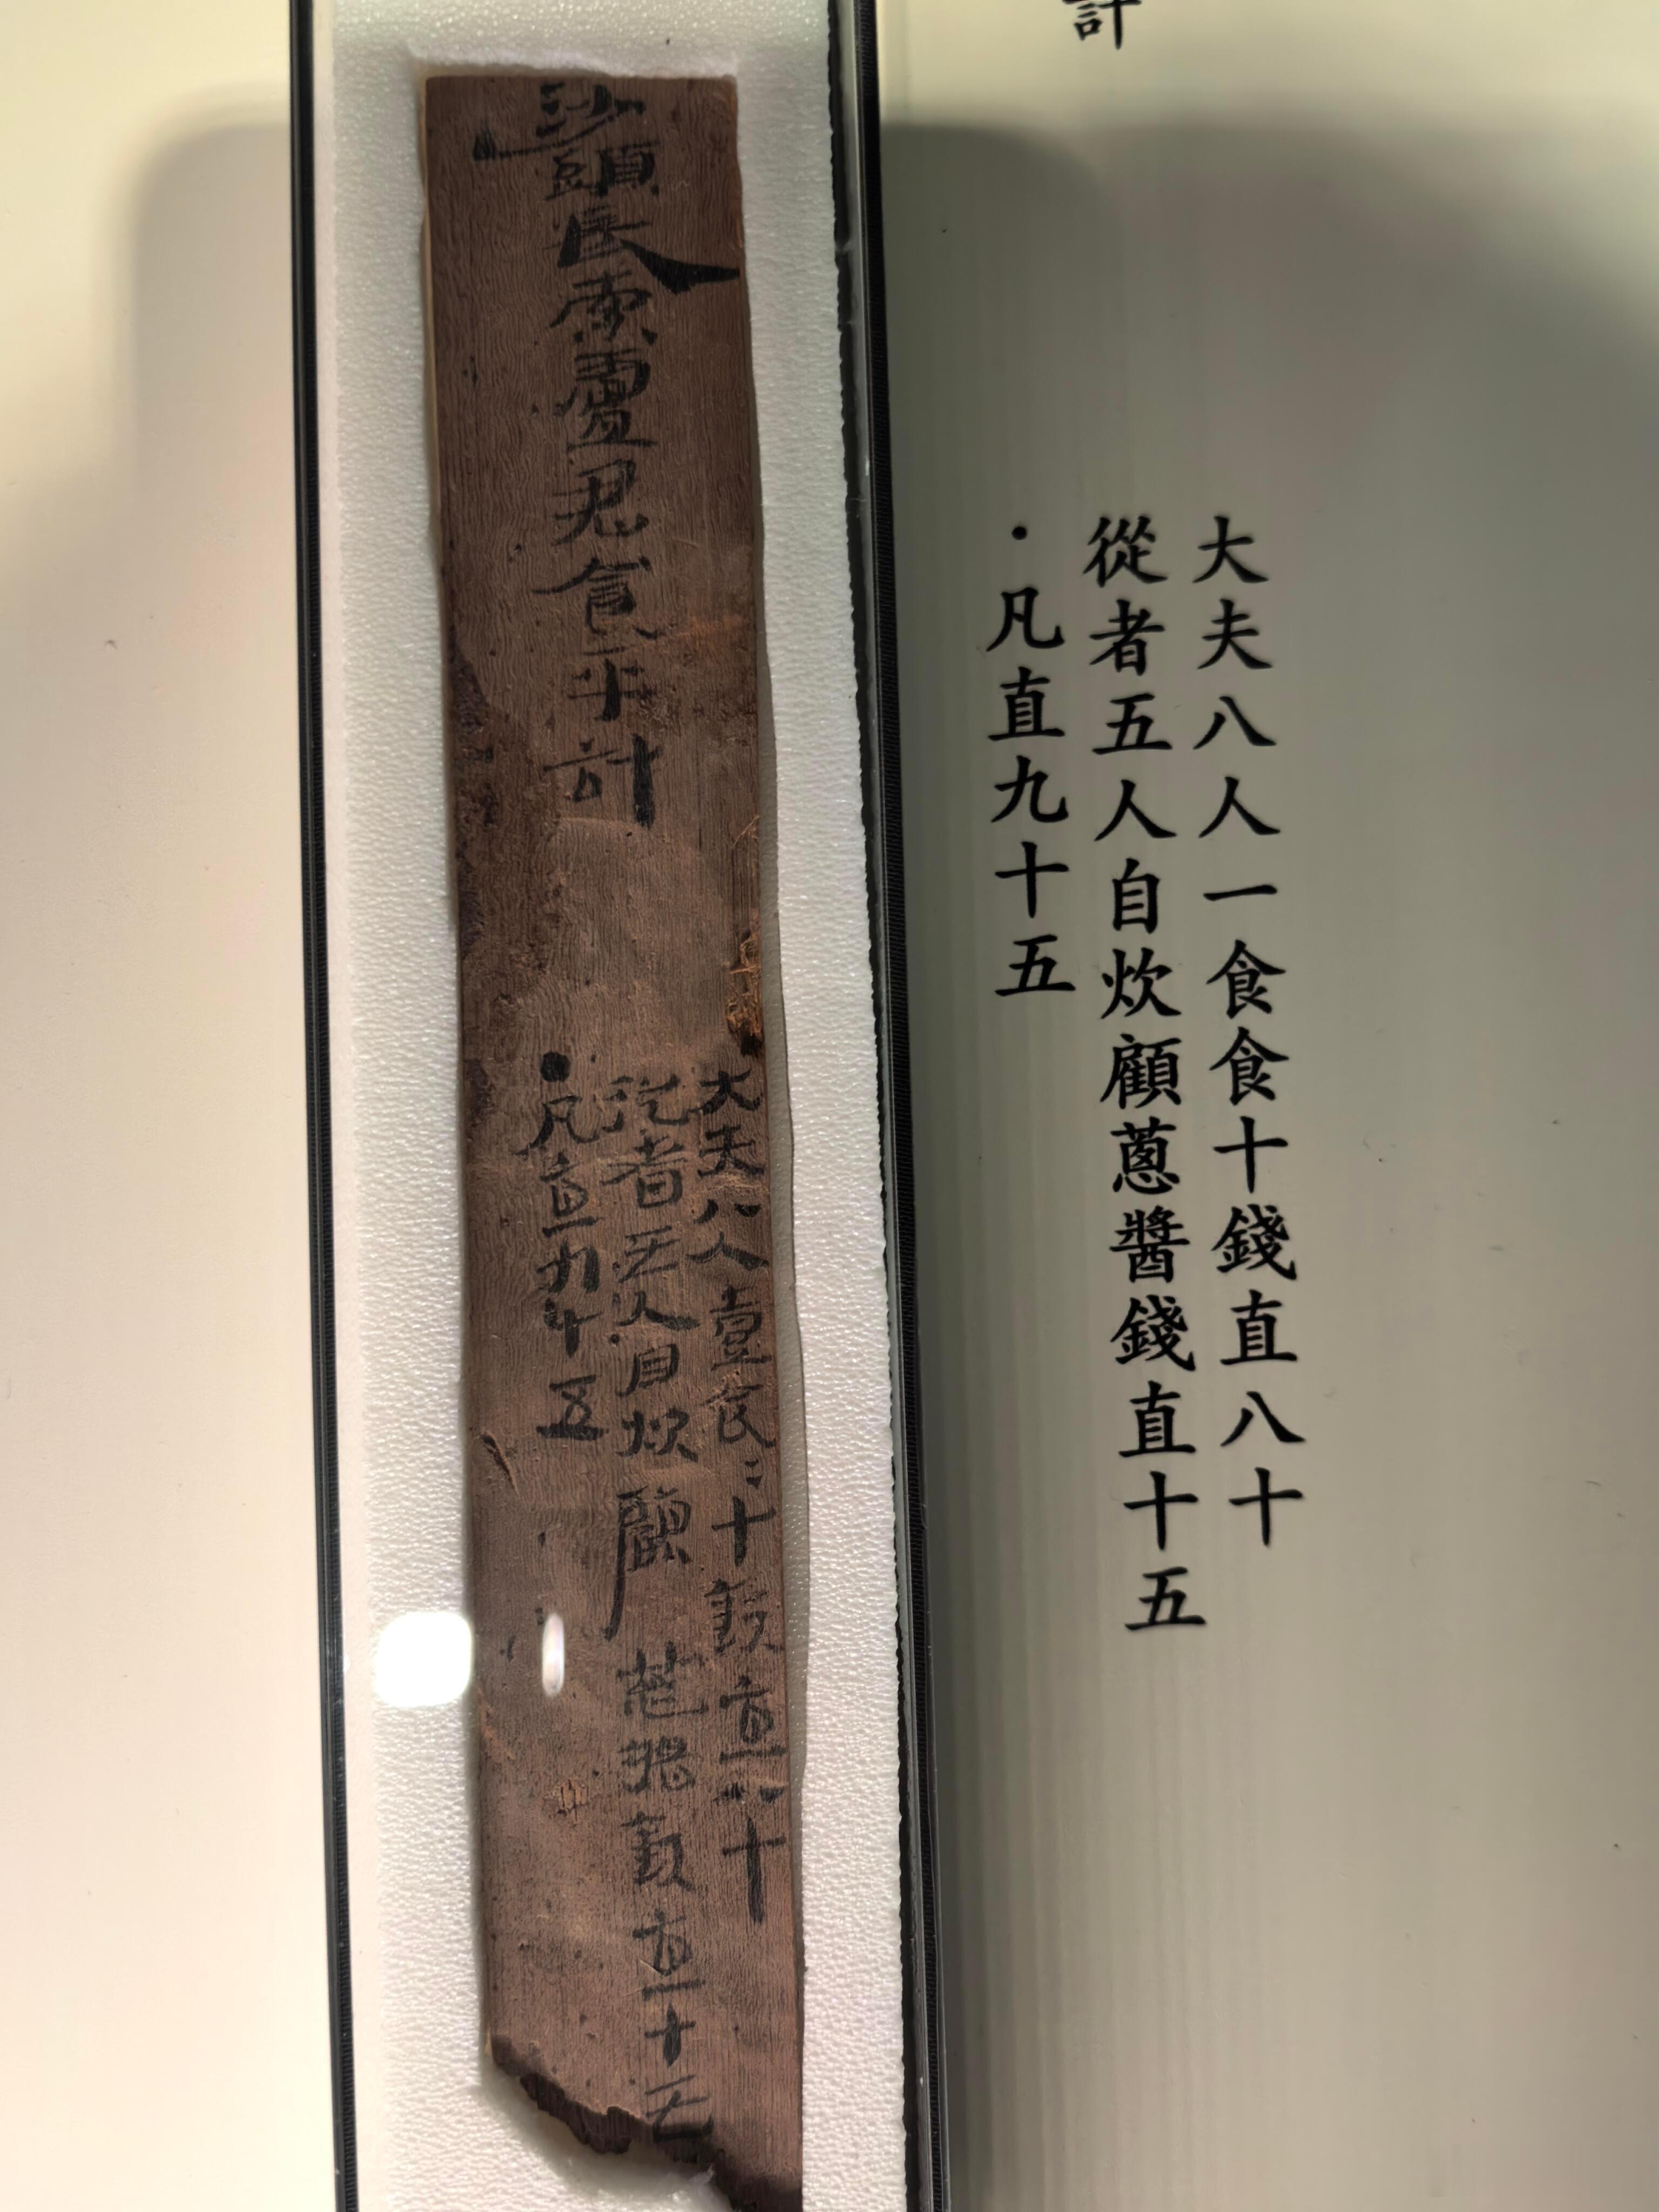 計
大夫八人一食食十錢直八十
從者五人自炊顧蔥醬錢直十五
·凡直九十五
沙頭長索盧君食平計
大夫八人壹食〻十錢直八十
從者五人自炊顧蔥醬錢直十五
·凡直九十五